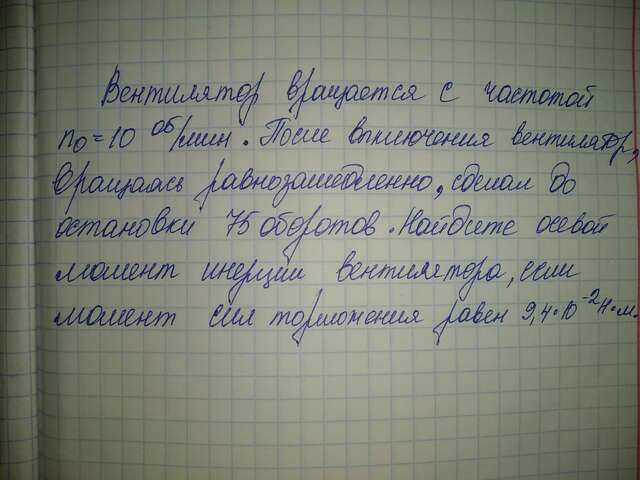 Вентилятор вращается с частотой
n₀ = 10 об/мин. После выключения вентилятор,
вращаясь равнозамедленно, сделал до
остановки 75 оборотов. Найдите осевой
момент инерции вентилятора, если
момент сил торможения равен 9,4·10⁻² Н·м.